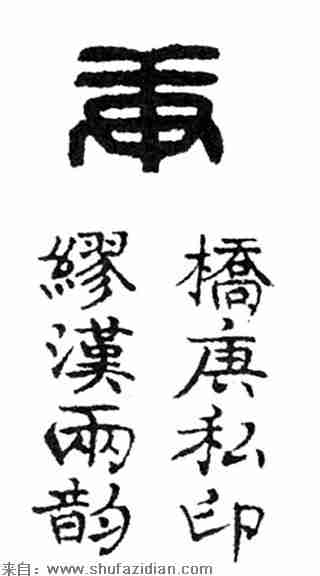 庚
橋庚私印
繆漢兩韵
来自:www.shufazidian.com